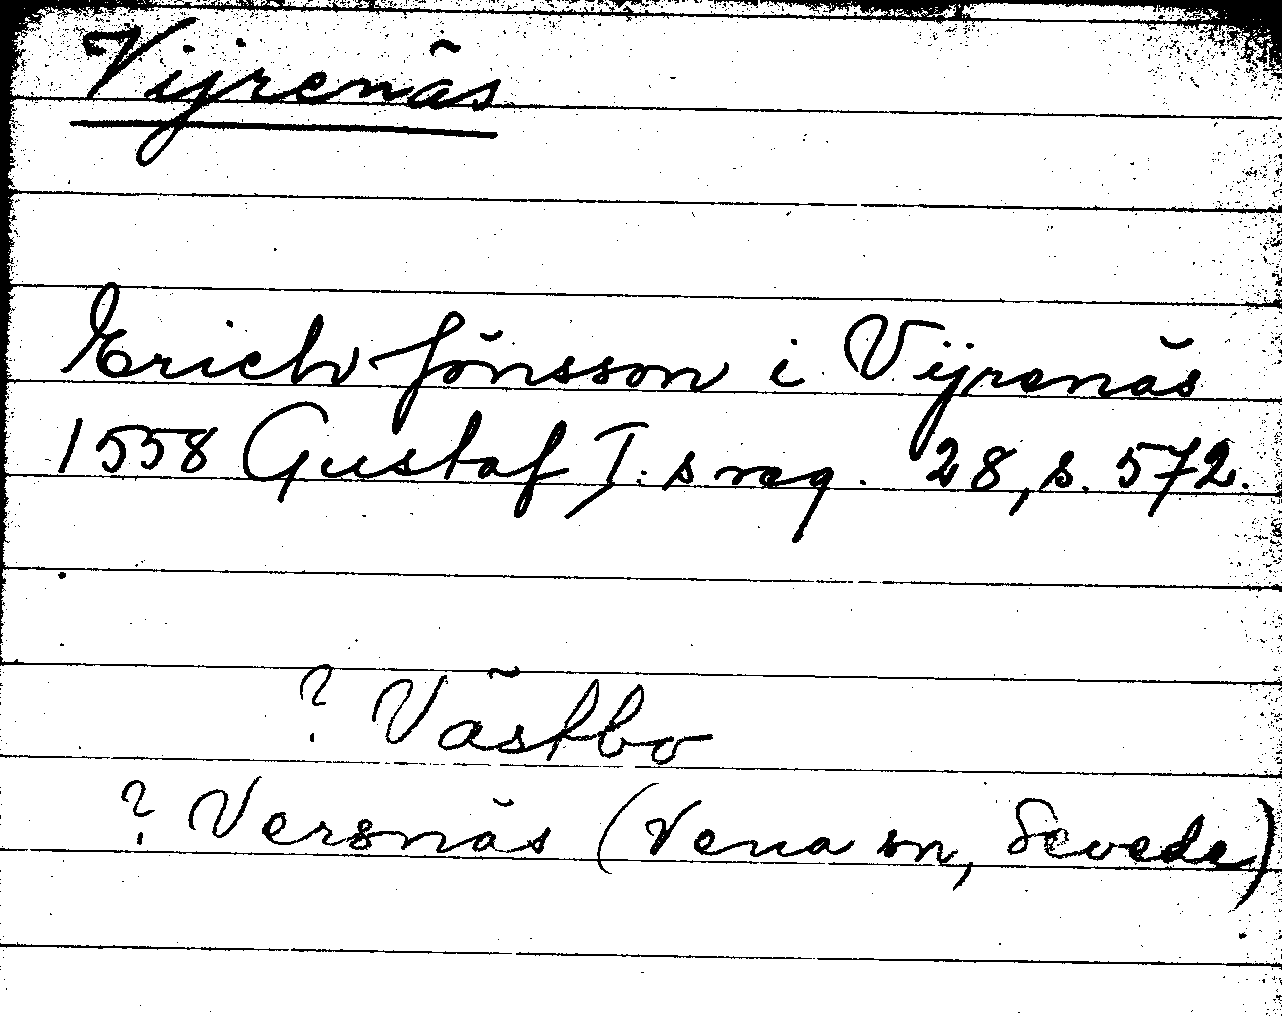 Vijrenäs
Erich Jönsson i Vijrenäs
1558 Gustaf I:s reg. 28, s. 572.
? Västbo
? Versnäs (Vena sn, Sevede)